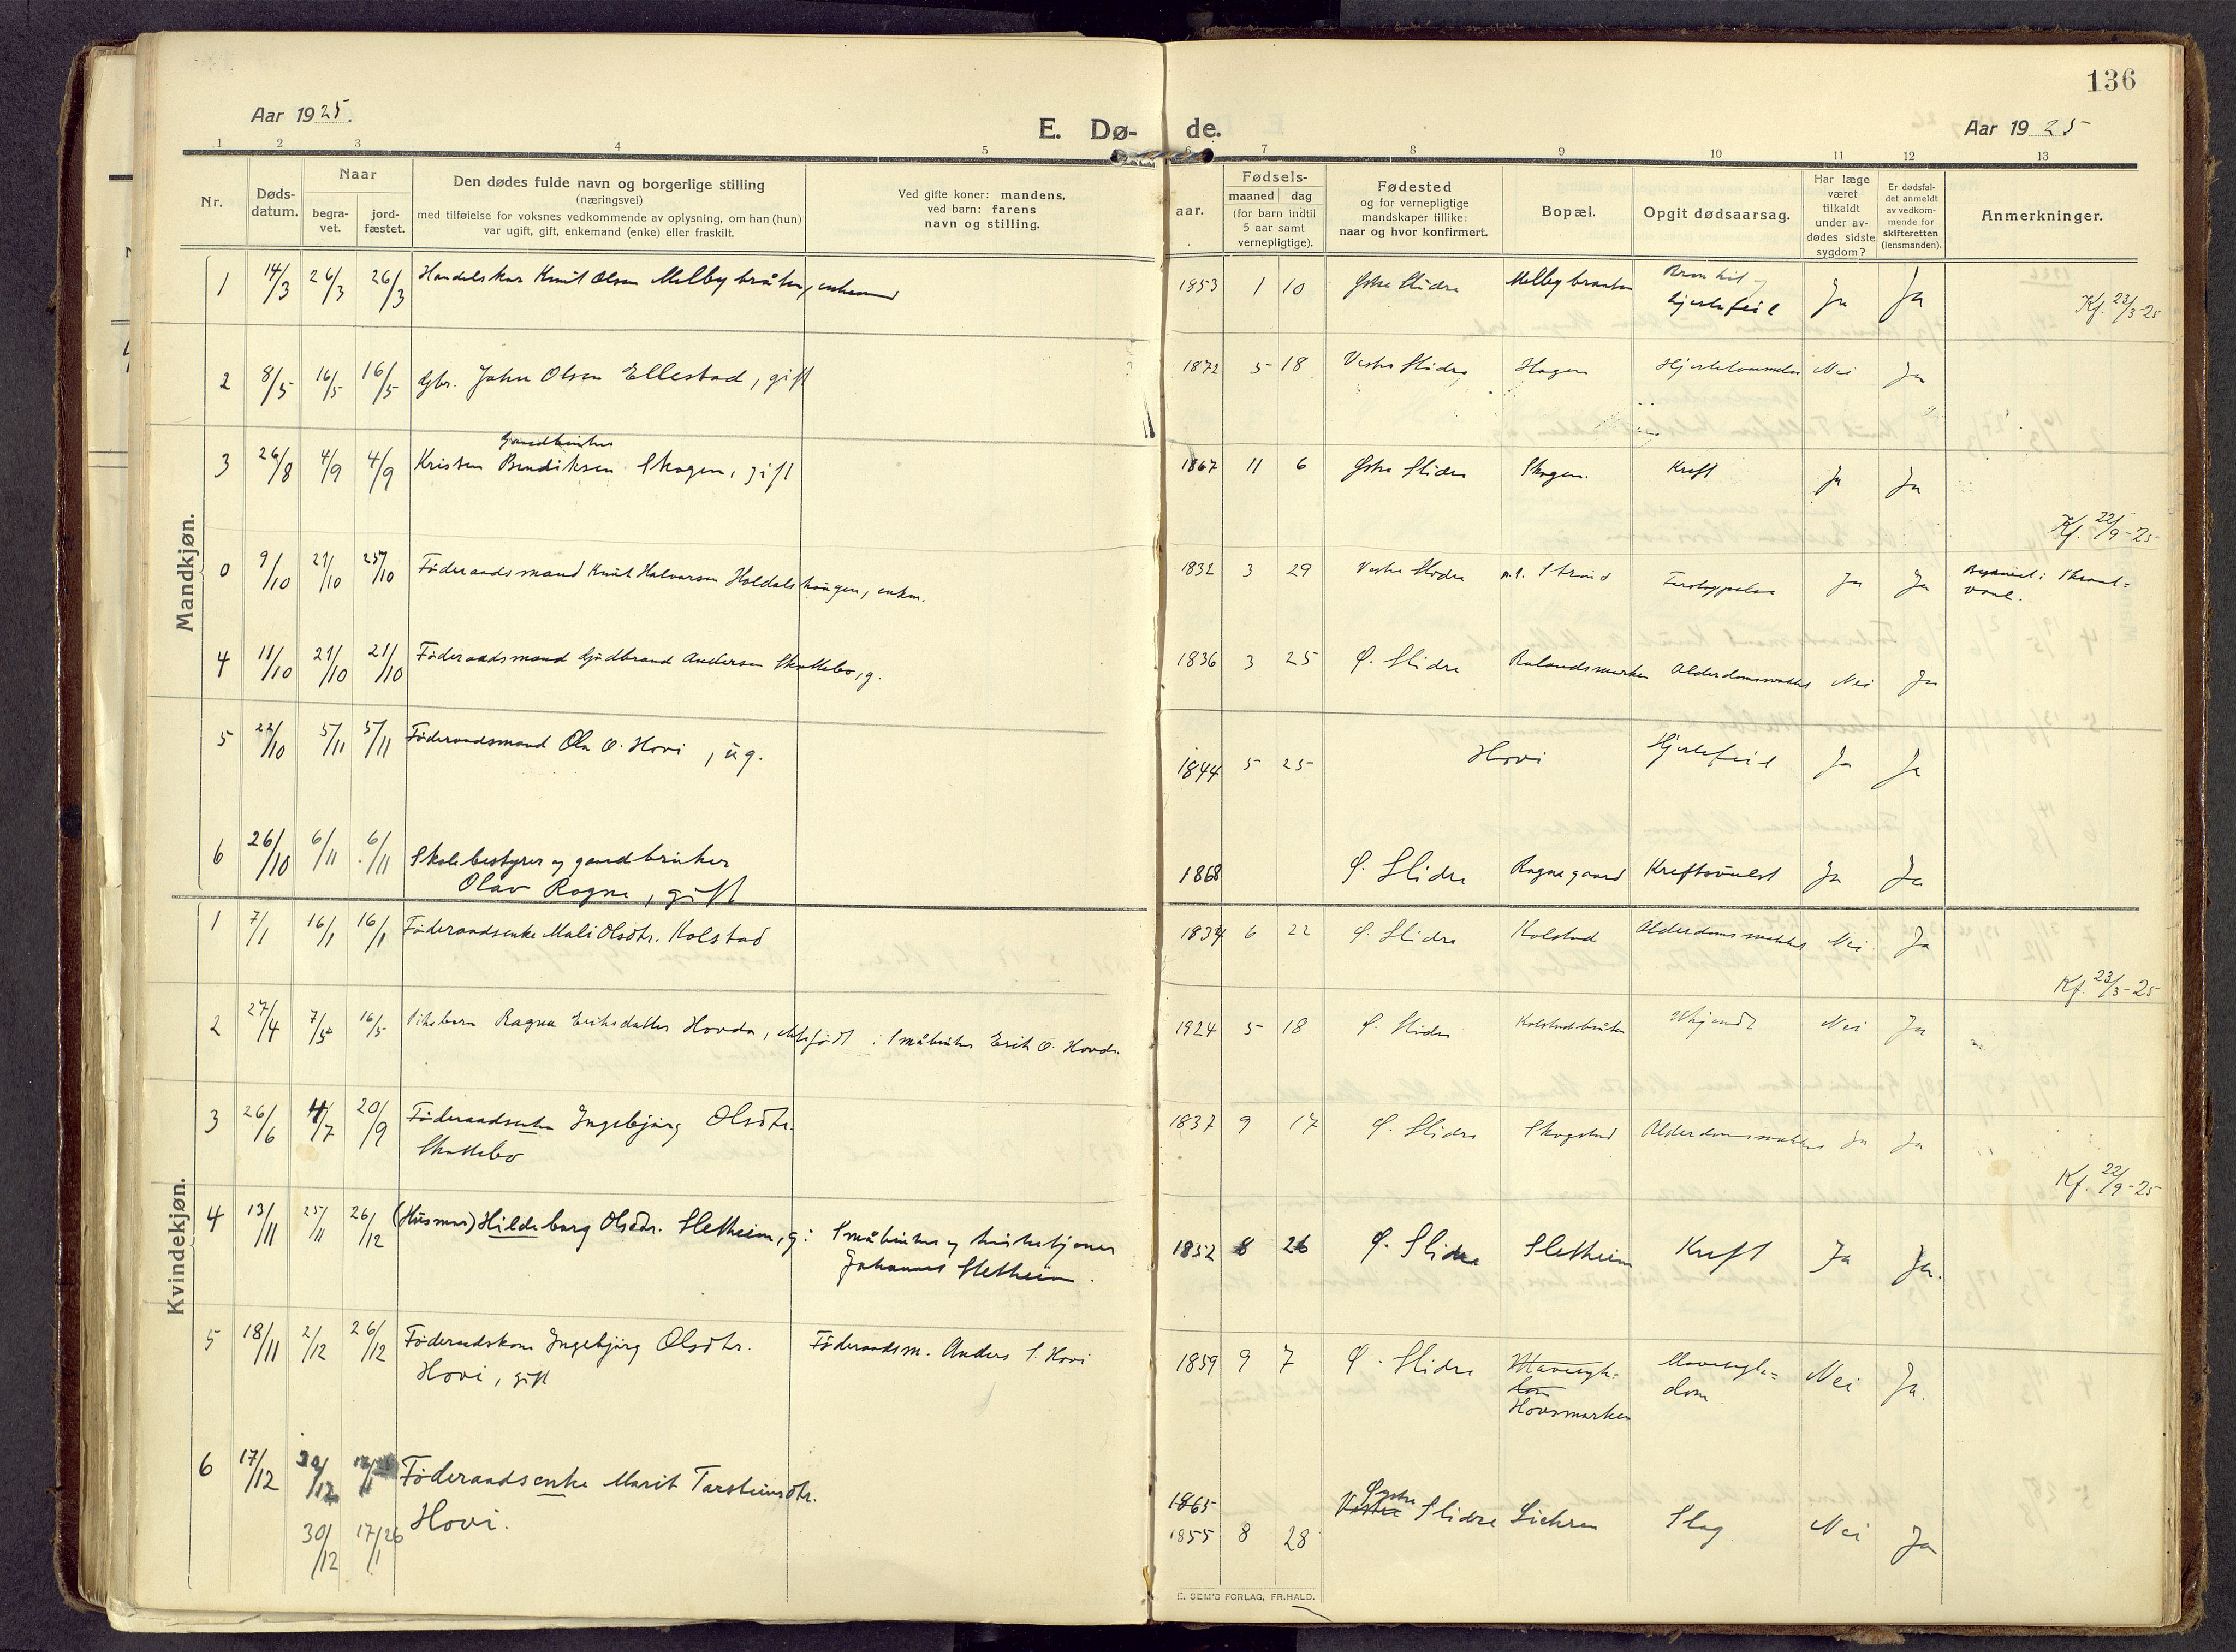 136
Aar 1925.
E. Dø-
de.
Aar 1925
1 2 3 4 5 6 7 8 9 10 11 12 13
Nr.
Døds-
datum.
Naar
begra-
vet.
jord-
fæstet.
Den dødes fulde navn og borgerlige stilling
(næringsvei)
med tilføielse for voksnes vedkommende av oplysning, om han (hun)
var ugift, gift, enkemand (enke) eller fraskilt.
Ved gifte koner: mandens,
ved barn: farens
navn og stilling.
aar.
Fødsels-
maaned dag
(for barn indtil
5 aar samt
vernepligtige).
Fødested
og for vernepligtige
mandskaper tillike:
naar og hvor konfirmert.
Bopæl.
Opgit dødsaarsag.
Har læge
været
tilkaldt
under av-
dødes sidste
sygdom?
Er dødsfal-
det anmeldt
av vedkom-
mende for
skifteretten
(lensmanden).
Anmerkninger.
Mandkjøn.
1 14/3 26/3 26/3 Handelskar Knut Olsen Melbybråten, enkemand 1853 1 10 Østre Slidre Melbybraaten Bronkit og
hjertefeil Ja Ja
Kf. 23/3-25
2 8/5 16/5 16/5 Gbr. John Olsen Ellestad, gift 1872 5 18 Vestre Slidre Hagen Hjertelammelse Nei Ja
Gaardbruker
3 26/8 4/9 4/9 Kristen Bendiksen Skogen, gift 1867 11 6 Østre Slidre Skogen Kreft Ja Ja
Kf. 22/9-25
0 9/10 21/10 25/10 Føderaadsmand Knut Halvorsen Holdalshaugen, enkm. 1832 3 29 Vestre Slidre p.t. Strand Ja Ja
4 11/10 21/10 21/10 Føderaadsmand Gudbrand Andersen Skattebo, g. 1836 3 25 Ø. Slidre Rolandsmarken Alderdomssvakhet Nei Ja
5 22/10 5/11 5/11 Føderaadsmand Ola O. Hovi, ug. 1844 5 25 Hovi Hjertefeil Ja Ja
6 26/10 6/11 6/11 Skolebestyrer og gaardbruker
Olav Rogne, gift 1868 Ø. Slidre Rognegaard Kreftsvulst Ja Ja
Kvindekjøn.
1 7/1 16/1 16/1 Føderaadsenke Mali Olsdtr. Kolstad 1834 6 22 Ø. Slidre Kolstad Alderdomssvakhet Nei Ja
Kf. 23/3-25
2 27/4 7/5 16/5 Pikebarn Ragna Eriksdatter Hovda, ektefødt : Småbruker Erik O. Hovda 1924 5 18 Ø. Slidre Kolstadbråten Ukjendt Nei Ja
3 26/6 4/7 20/9 Føderaadsenke Ingebjørg Olsdtr.
Skattebo 1837 9 17 Ø. Slidre Skogstad Alderdomssvakhet Ja Ja
Kf. 22/9-25
4 13/11 25/11 26/12 (Husmor) Hildeborg Olsdtr. Sletheim, g: Småbruker og kirketjener
Johannes Sletheim. 1852 8 26 Ø. Slidre Sletheim Kreft Ja Ja.
5 18/11 2/12 26/12 Føderaadskone Ingebjørg Olsdtr.
Hovi, gift Føderaadsm. Anders S. Hovi 1859 9 7 Ø. Slidre Mavesyk=
dom
Hovsmarken Mavesyk=
dom Nei Ja.
6 17/12 30/12 Føderaadsenke Marit Torsteinsdtr.
Hovi.
30/12 17/1 26
1865
1855 8 28 Østre
Vestre Slidre Slag Nei Ja
E. SEM'S FORLAG, FR.HALD.